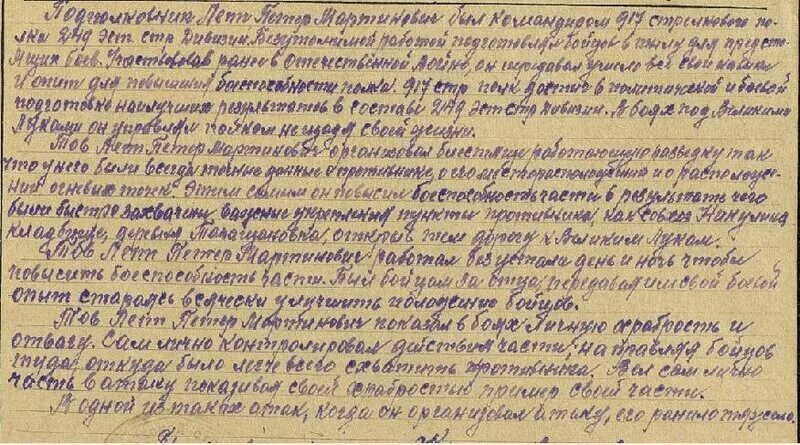 Подполковник Летт Петер Мартинович был командиром 917 стрелкового по-
лка 249 эст. стр. дивизии. Безутомимой работой подготовлял бойцов в тылу для предсто-
ящих боев. Участвовав ранее в отечественной войне, он передавал умело все свои навыки
и опит для повишения боеспособности полка. 917 стр. полк достиг в политической и боевой
подготовке наилучших результатов в составе 249 эст. стр. дивизии. В боях под Великими
Луками он управлял полком не щадя своей жизни.
Тов. Летт Петер Мартинович организовал блестяще работающую разведку так
что у него били всегда точные данные о противнике, о его месторасположении и о расположе-
нии огневих точек. Этим самым он повысил боеспособность части в результате чего
были быстро захвачени важные укрепления пункты противника, как совхоз Никулино
кладбище, деревня открыв тем дорогу к Великим Лукам.
Тов. Летт Петер Мартинович работал без устали день и ночь чтобы
повысить боеспособность части. Был бойцам за отца, передавая им свой боевой
опыт стараясь всячески улучшить положение бойцов.
Тов. Летт Петер Мартинович показал в боях личную храбрость и
отвагу. Сам лично контролировал действия части, направляя бойцов
туда, откуда было легче всего схватить противника. Вел сам лично
часть в атаку показивая своей храбростью пример своей части.
В одной из таких атак, когда он организовал атаку, его ранило тяжело.